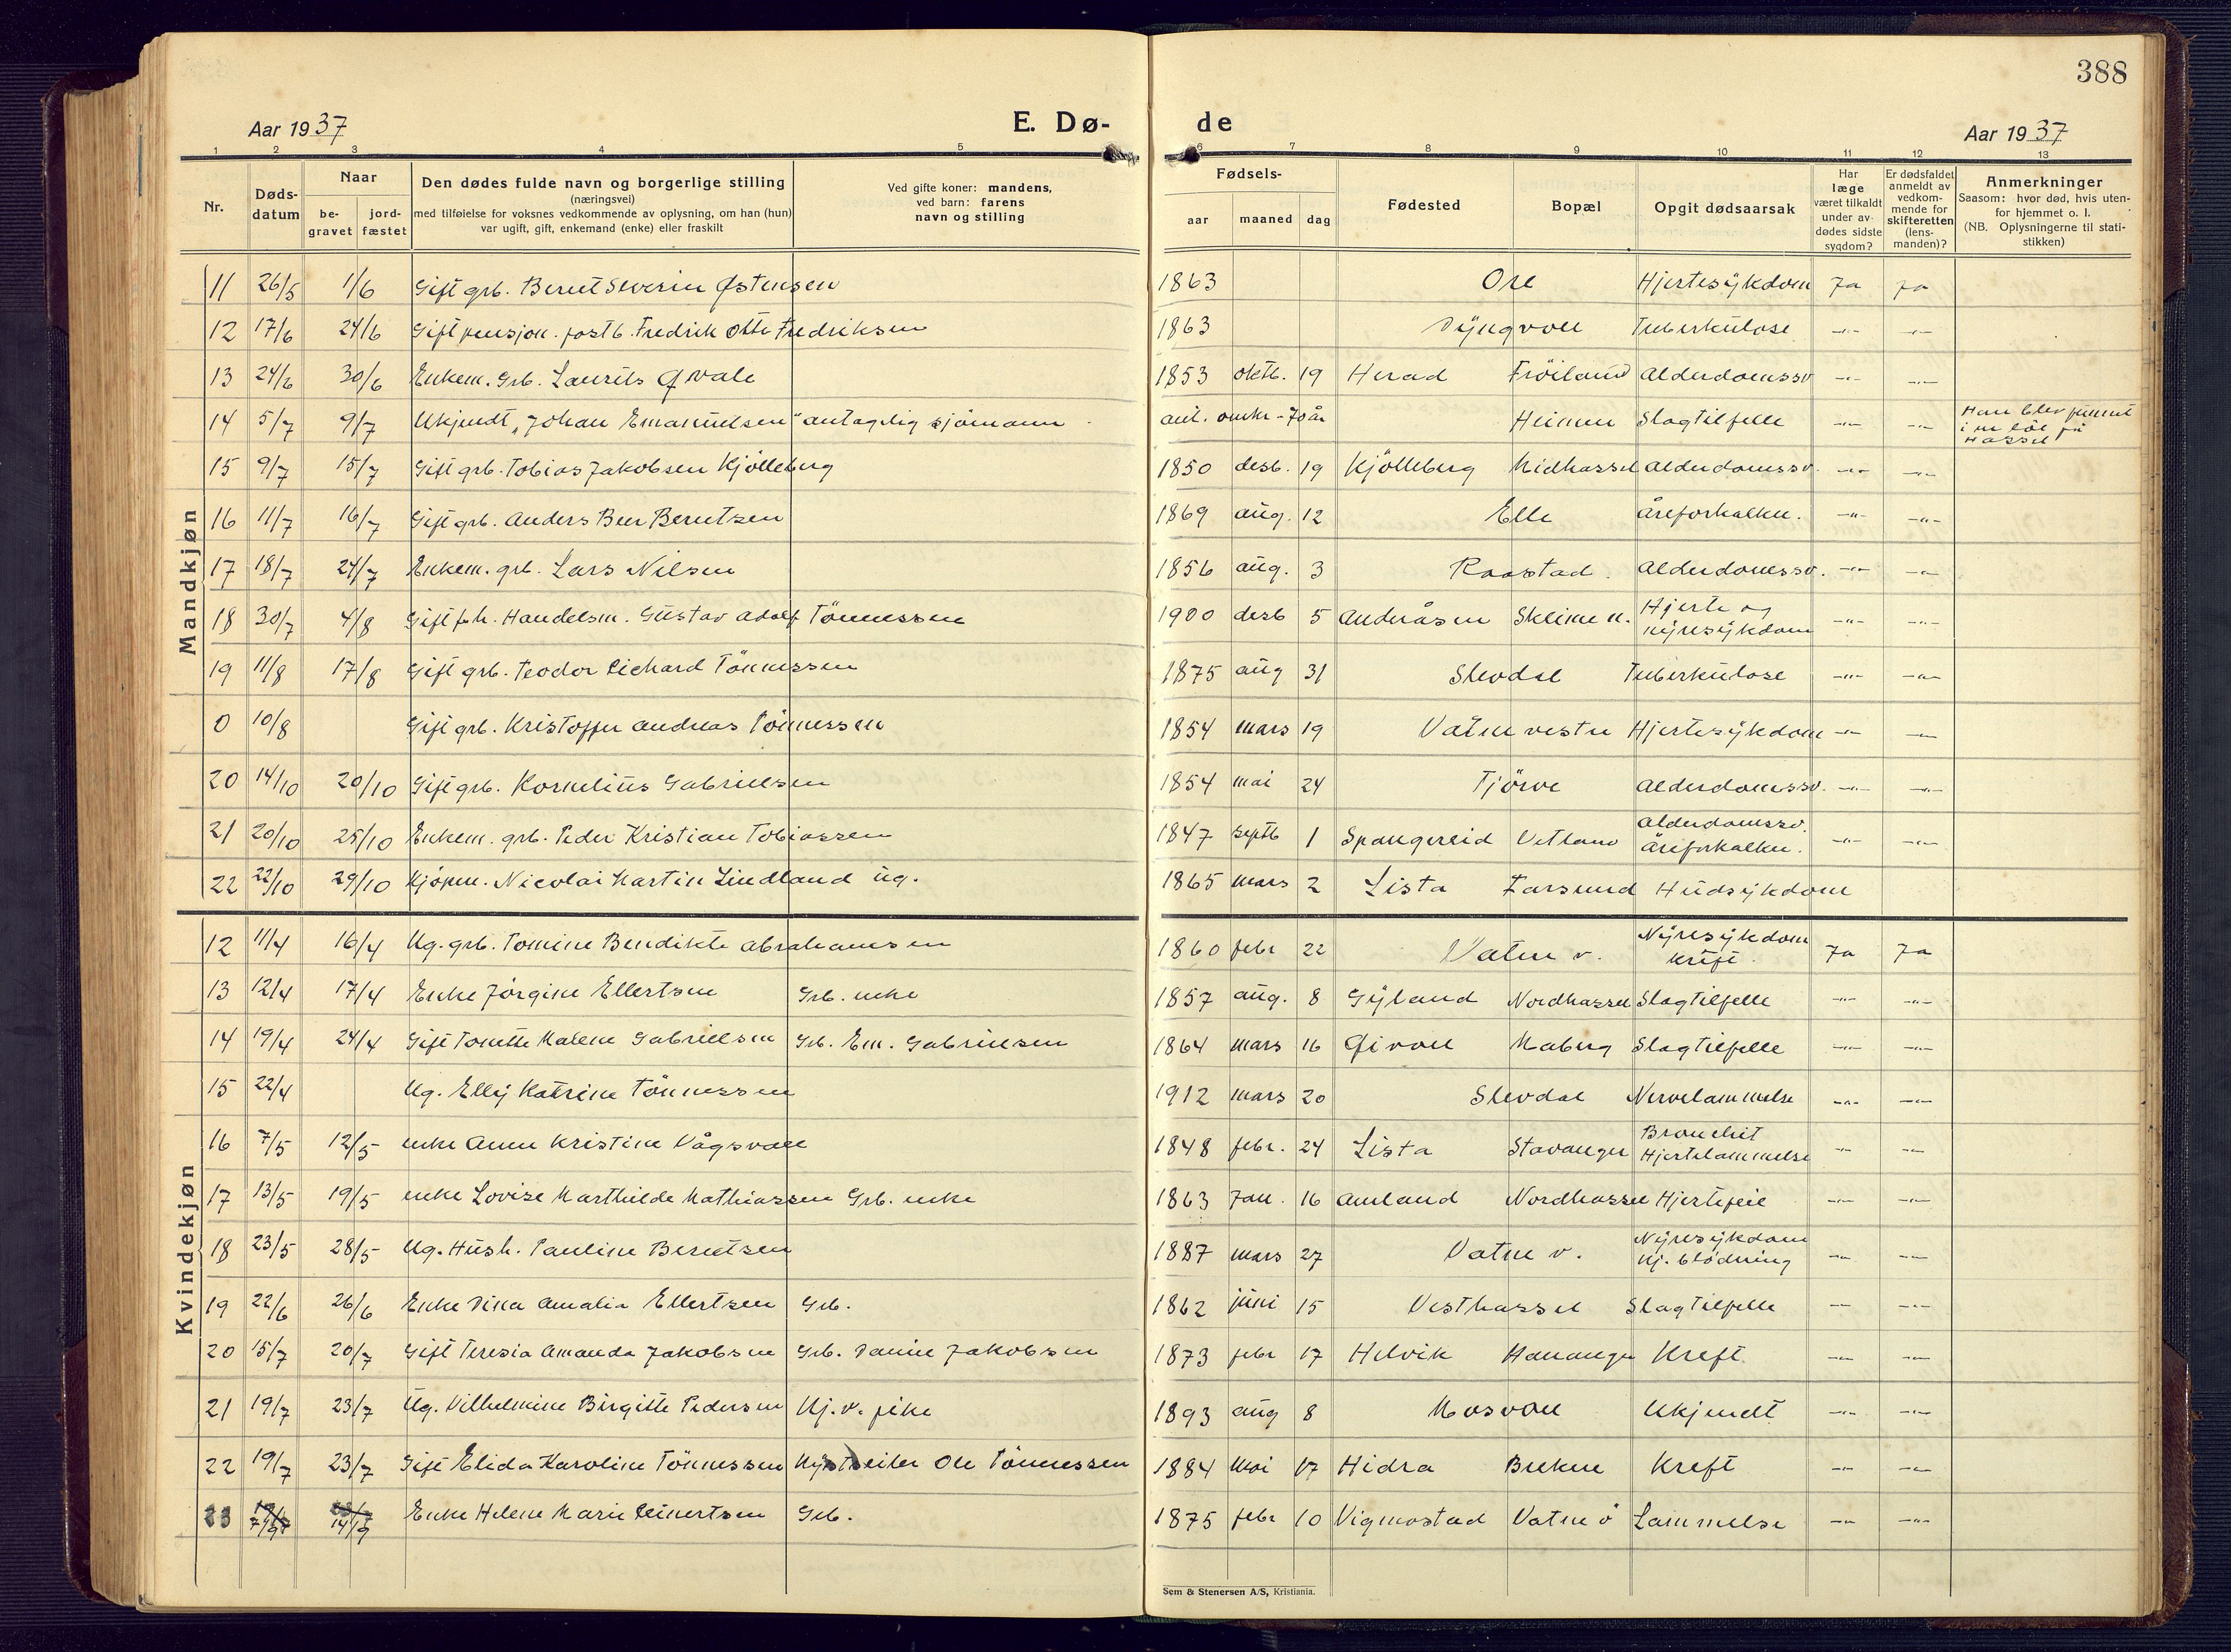 388
Aar 1937
E. Dø- de
Aar 1937
1 2 3 4 5 6 7 8 9 10 11 12 13
Nr. Døds-datum Naar be-gravet jord-fæstet Den dødes fulde navn og borgerlige stilling (næringsvei) med tilføielse for voksnes vedkommende av oplysning, om han (hun) var ugift, gift, enkemand (enke) eller fraskilt Ved gifte koner: mandens, ved barn: farens navn og stilling Fødsels- aar maaned dag Fødested Bopæl Opgit dødsaarsak Har læge været tilkaldt under av-dødes sidste sygdom? Er dødsfaldet anmeldt av vedkom-mende for skifteretten (lens-manden)? Anmerkninger Saasom: hvor død, hvis uten-for hjemmet o. l. (NB. Oplysningerne til stati-stikken)
Mandkjøn
11 26/5 1/6 Gift grb. Bernt Severin Østensen 1863 Ore Hjertesykdom Ja Ja
12 17/6 24/6 Gift pensjon. postb. Fredrik Otto Fredriksen 1863 Dyngvoll Tuberkulose -"- -"-
13 24/6 30/6 Enkem. Grb. Laurits Qvale 1853 oktb. 19 Herad Fröiland Alderdomssv -"- -"-
14 5/7 9/7 Ukjendt „Johan Emanuelsen" antagelig sjömann ant. omkr - 70 år Heimen Slagtilfelle -"- -"- Han blev funnet i en löe på Hassel
15 9/7 15/7 Gift grb. Tobias Jakobsen Kjölleberg 1850 desb. 19 Kjölleberg Midhassel Alderdomssv. -"- -"-
16 11/7 16/7 Gift grb. Anders Beer Berntsen 1869 aug. 12 Elle Åreforkalkn. -"- -"-
17 18/7 24/7 Enkem. grb. Lars Nilsen 1856 aug. 3 Raastad. Alderdomssv. -"- -"-
18 30/7 4/8 Gift fh. Handelsm. Gustav Adolf Tönnessen 1900 desb 5 Anderåsen Skeime n. Hjerte og nyresykdom -"- -"-
19 11/8 17/8 Gift grb. Teodor Richard Tönnessen 1875 aug 31 Slevdal Tuberkulose -"- -"-
0 10/8 Gift grb. Kristoffer Andreas Tönnessen 1854 mars 19 Vatne vestre Hjertesykdom -"- -"-
20 14/10 20/10 Gift grb. Kornelius Gabrielsen 1854 mai 24 Tjörve Alderdomssv. -"- -"-
21 20/10 25/10 Enkem. grb. Peder Kristian Tobiassen 1847 septb 1 Spangereid Vetland Alderdomssv. Åreforkalkn. -"- -"-
22 22/10 29/10 Kjöpm. Nicolai Martin Lindland ug. 1865 mars 2 Lista Farsund Hudsykdom
Kvindekjøn
12 11/4 16/4 Ug. grb. Tomine Bendikte Abrahamsen 1860 febr 22 Vatne v. Nyresykdom kreft. Ja Ja
13 12/4 17/4 Enke Jörgine Ellertsen Grb. enke 1857 aug. 8 Gyland Nordhassel Slagtilfelle -"- -"-
14 19/4 24/4 Gift Tonette Malene Gabrielsen Grb. Em. Gabrielsen 1864 mars 16 Givoll Maberg Slagtilfelle -"- -"-
15 22/4 Ug. Elly Katrine Tönnessen 1912 mars 20 Slevdal Nervelammelse -"- -"-
16 7/5 12/5 enke Anne Kristine Vågsvoll 1848 febr. 24 Lista Stavanger Bronchit Hjertelammelse -"- -"-
17 13/5 19/5 enke Lovise Marthilde Mathiassen Grb. enke 1863 Jan. 16 Amland Nordhassel Hjertefeil -"- -"-
18 23/5 28/5 Ug. Hush. Pauline Berntsen 1887 mars 27 Vatne v. Nyresykdom Hj. blödning -"- -"-
19 22/6 26/6 Enke Dina Amalia Ellertsen Grb. 1862 juni 15 Vesthassel Slagtilfelle -"- -"-
20 15/7 20/7 Gift Teresia Amanda Jakobsen Grb. Danie Jakobsen 1873 febr 17 Helvik Hananger Kreft. -"- -"-
21 19/7 23/7 Ug. Vilhelmine Birgitte Pedersen Hj. v. pike 1893 aug 8 Mosvoll Ukjendt -"- -"-
22 19/7 23/7 Gift Elida Karoline Tönnessen Ole Tönnessen 1884 Mai 17 Hidra Brekne Kreft -"- -"-
23 7/9 14/9 Enke Helene Marie Reinertsen Grb. 1875 febr 10 Vigmostad Vatne ö Lammelse -"- -"-
Sem & Stenersen A/S, Kristiania.